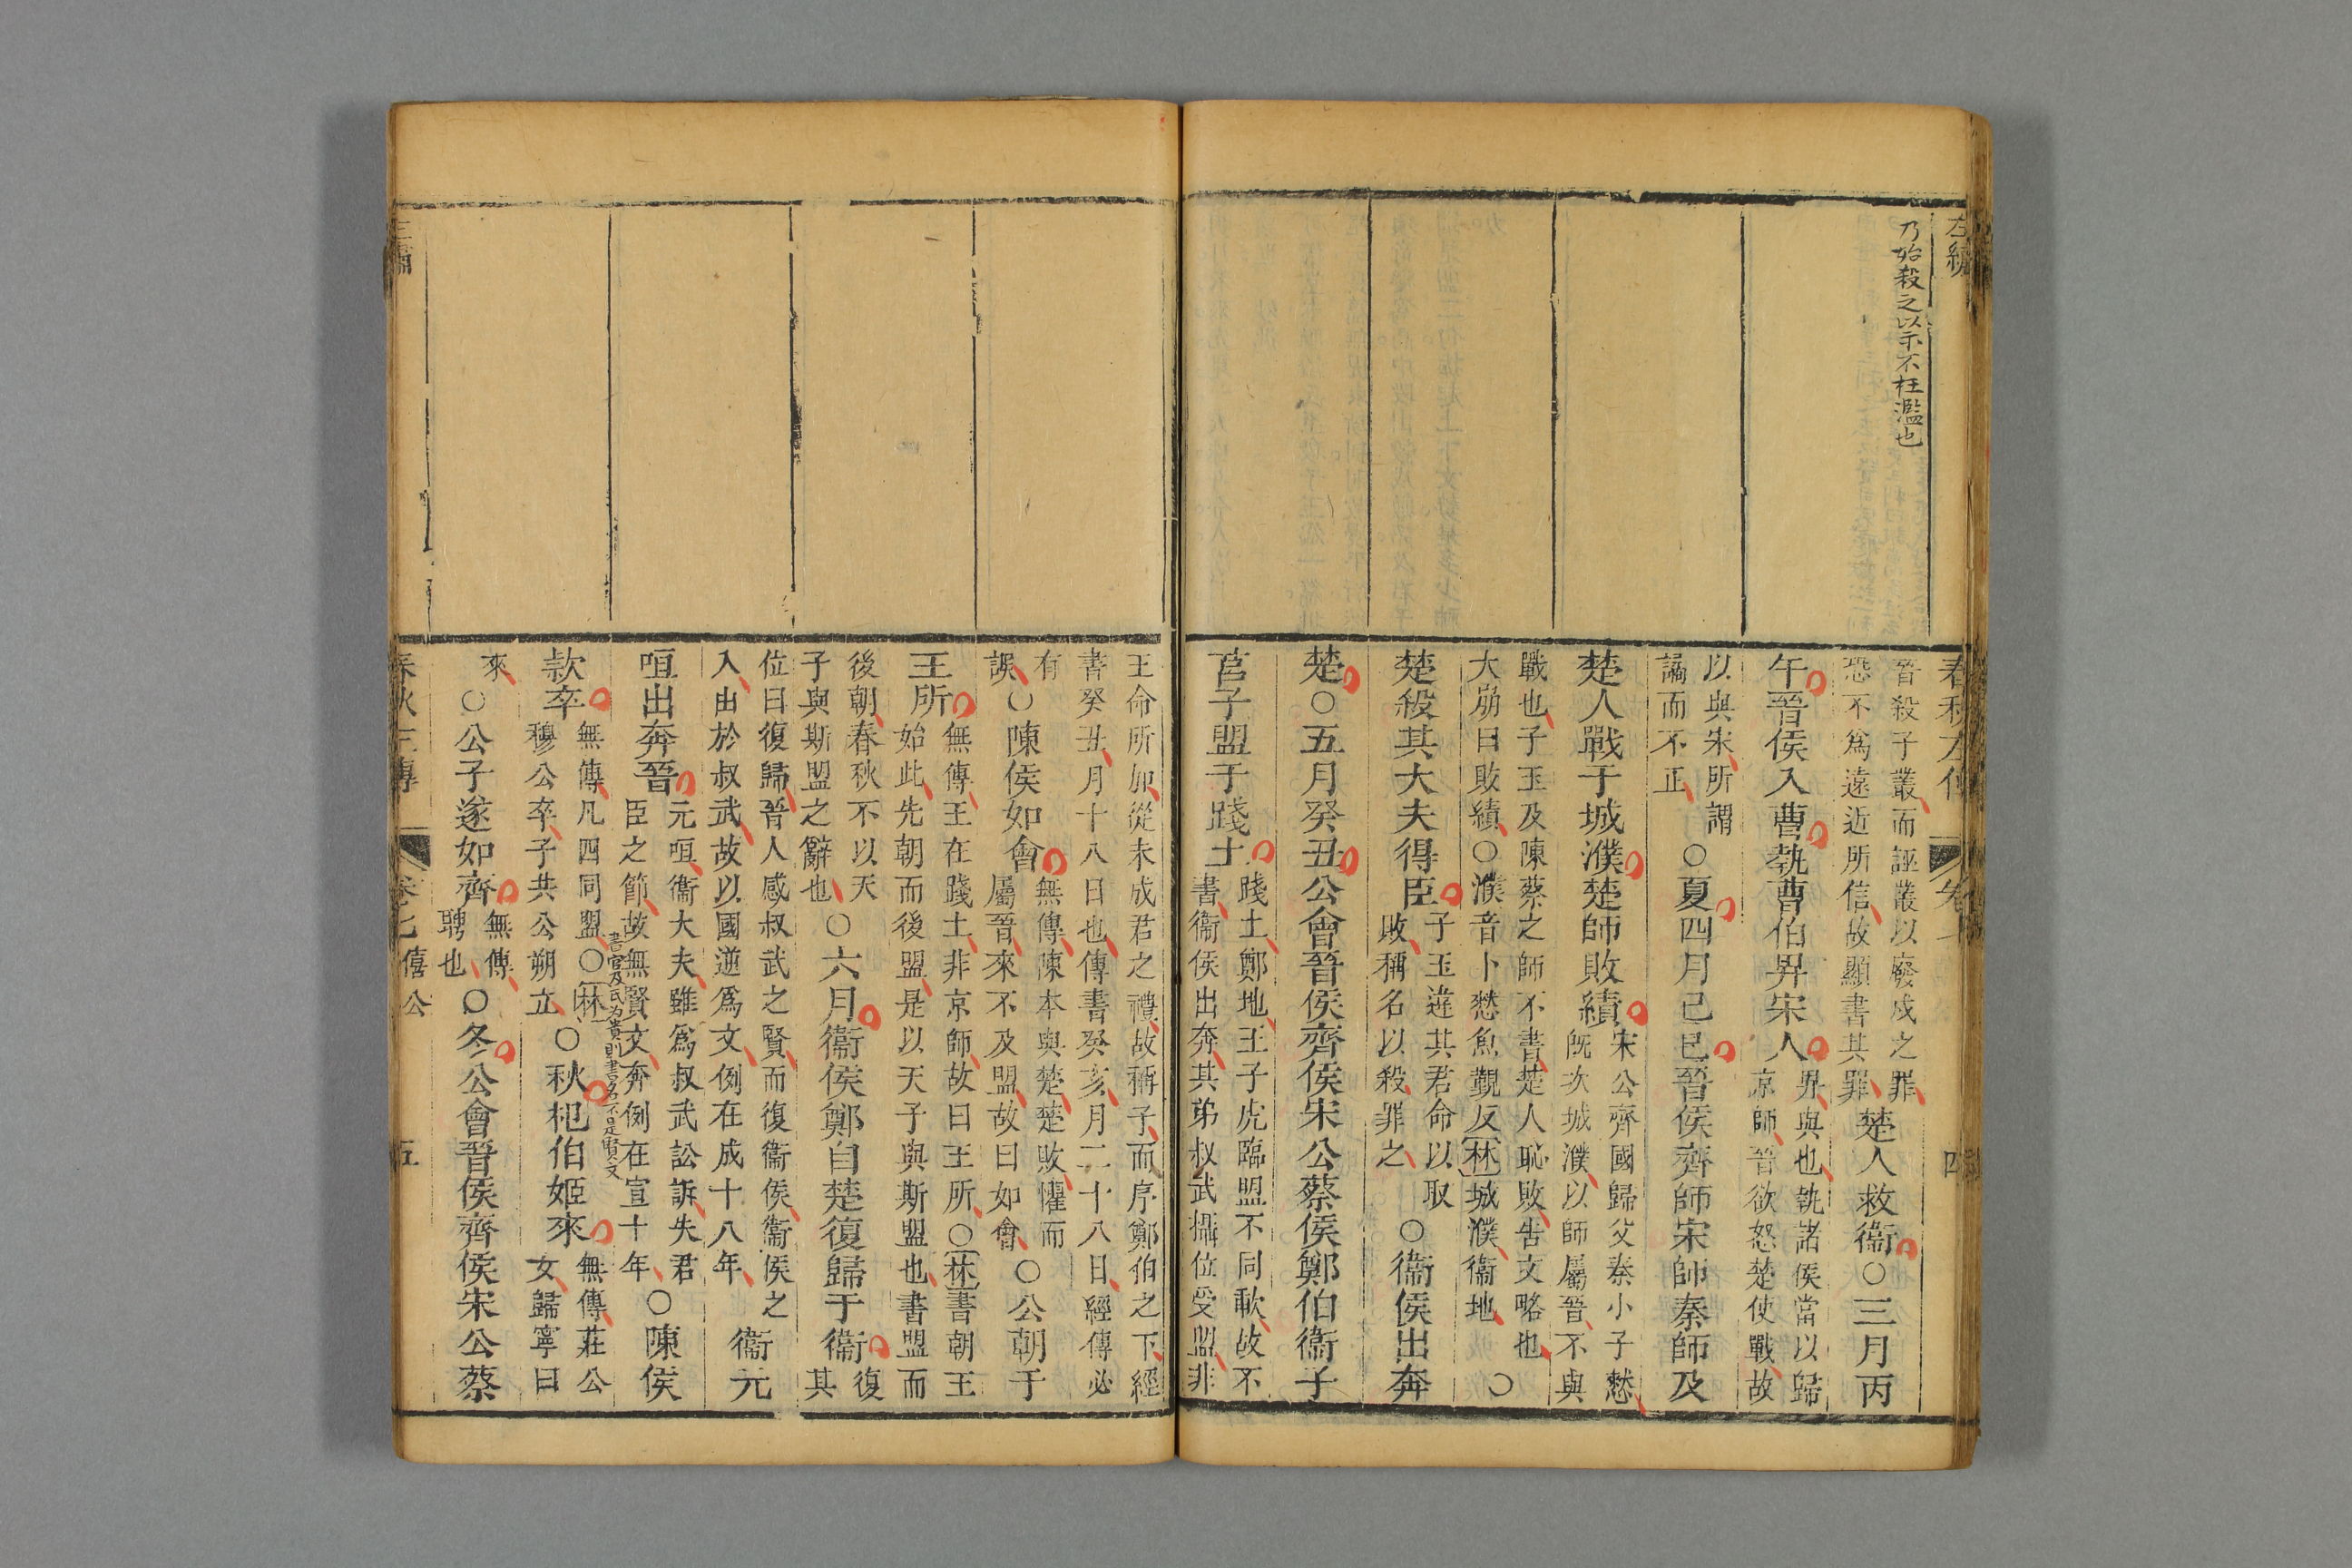 左繡
乃始殺之以示不枉濫也
春秋左傳
卷七
四
晉殺子叢而誣叢以廢戍之罪
恐不爲遠近所信故顯書其罪
楚人救衞○三月丙
午晉侯入曹執曹伯畀宋人
畀與也執諸侯當以歸
京師晉欲怒楚使戰故
以與宋所謂
譎而不正
○夏四月己巳晉侯齊師宋師秦師及
楚人戰于城濮楚師敗績
宋公齊國歸父秦小子憖
旣次城濮以師屬晉不與
戰也子玉及陳蔡之師不書楚人恥敗告文略也
大崩曰敗績○濮音卜憖魚覲反林城濮衞地
○
楚殺其大夫得臣
子玉違其君命以取
敗稱名以殺罪之
○衞侯出奔
楚○五月癸丑公會晉侯齊侯宋公蔡侯鄭伯衞子
莒子盟于踐土
踐土鄭地王子虎臨盟不同歃故不
書衞侯出奔其弟叔武攝位受盟非
王命所加從未成君之禮故稱子而序鄭伯之下經
書癸丑月十八日也傳書癸亥月二十八日經傳必
有
誤
○陳侯如會
無傳陳本與楚楚敗懼而
屬晉來不及盟故曰如會
○公朝于
王所
無傳王在踐土非京師故曰王所○林書朝王
始此先朝而後盟是以天子與斯盟也書盟而
後朝春秋不以天
子與斯盟之辭也
○六月衞侯鄭自楚復歸于衞
復
其
位曰復歸晉人感叔武之賢而復衞侯衞侯之
入由於叔武故以國逆爲文例在成十八年
衞元
咺出奔晉
元咺衞大夫雖爲叔武訟訴失君
臣之節故無賢文奔例在宣十年
書官及氏爲貴則書名不是賢文
○陳侯
款卒
無傳凡四同盟○林
穆公卒子共公朔立
○秋杞伯姬來
無傳莊公
女歸寧曰
來
○公子遂如齊
無傳
聘也
○冬公會晉侯齊侯宋公蔡
左繡
春秋左傳
卷七
僖公
五